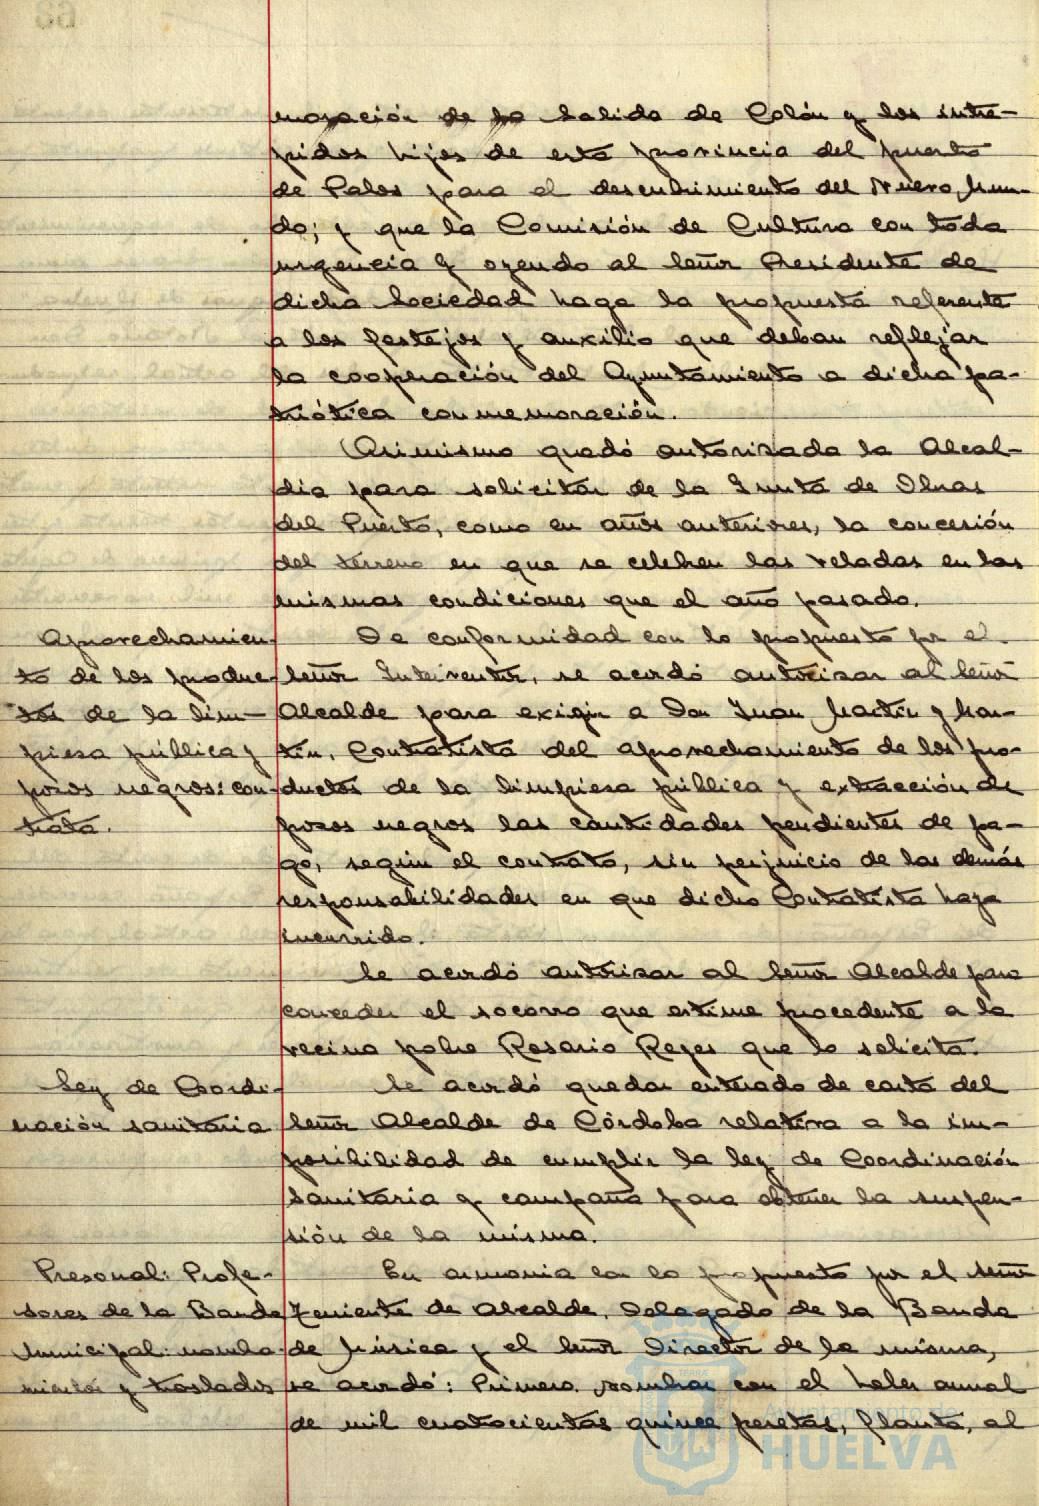 moración de la salida de Colón y los intré-
pidos hijos de esta provincia del puerto
de Palos para el descubrimiento del Nuevo Mun-
do; y que la Comisión de Cultura con toda
urgencia y oyendo al Señor Presidente de
dicha Sociedad haga la propuesta referente
a los festejos y auxilio que deban reflejar
la cooperación del Ayuntamiento a dicha pa-
triótica conmemoración.
Asimismo quedó autorizada la Alcal-
día para solicitar de la Junta de Obras
del Puerto, como en años anteriores, la concesión
del terreno en que se celebren las veladas en las
mismas condiciones que el año pasado.
Aprovechamien-
to de los produc-
tos de la lim-
pieza pública y
pozos negros: con-
trata.
De conformidad con lo propuesto por el
Señor Interventor, se acordó autorizar al Señor
Alcalde para exigir a Don Juan Martín y Mar-
tín, Contratista del aprovechamiento de los pro-
ductos de la limpieza pública y extracción de
pozos negros las cantidades pendientes de pa-
go, según el contrato, sin perjuicio de las demás
responsabilidades en que dicho Contratista haya
incurrido.
Se acordó autorizar al Señor Alcalde para
conceder el socorro que estime procedente a la
vecina pobre Rosario Reyes que lo solicita.
Ley de Coordi-
nación sanitaria
Se acordó quedar enterado de carta del
Señor Alcalde de Córdoba relativa a la im-
posibilidad de cumplir la ley de Coordinación
Sanitaria y campaña para obtener la suspen-
sión de la misma.
Presonal: Profe-
sores de la Banda
Municipal: nombra-
mientos y traslados
En armonía con lo propuesto por el Señor
Teniente de Alcalde, Delegado de la Banda
de Música y el Señor Director de la misma,
se acordó: Primero. nombrar con el haber anual
de mil cuatrocientas quince pesetas, flauta, al
Ayuntamiento de
HUELVA